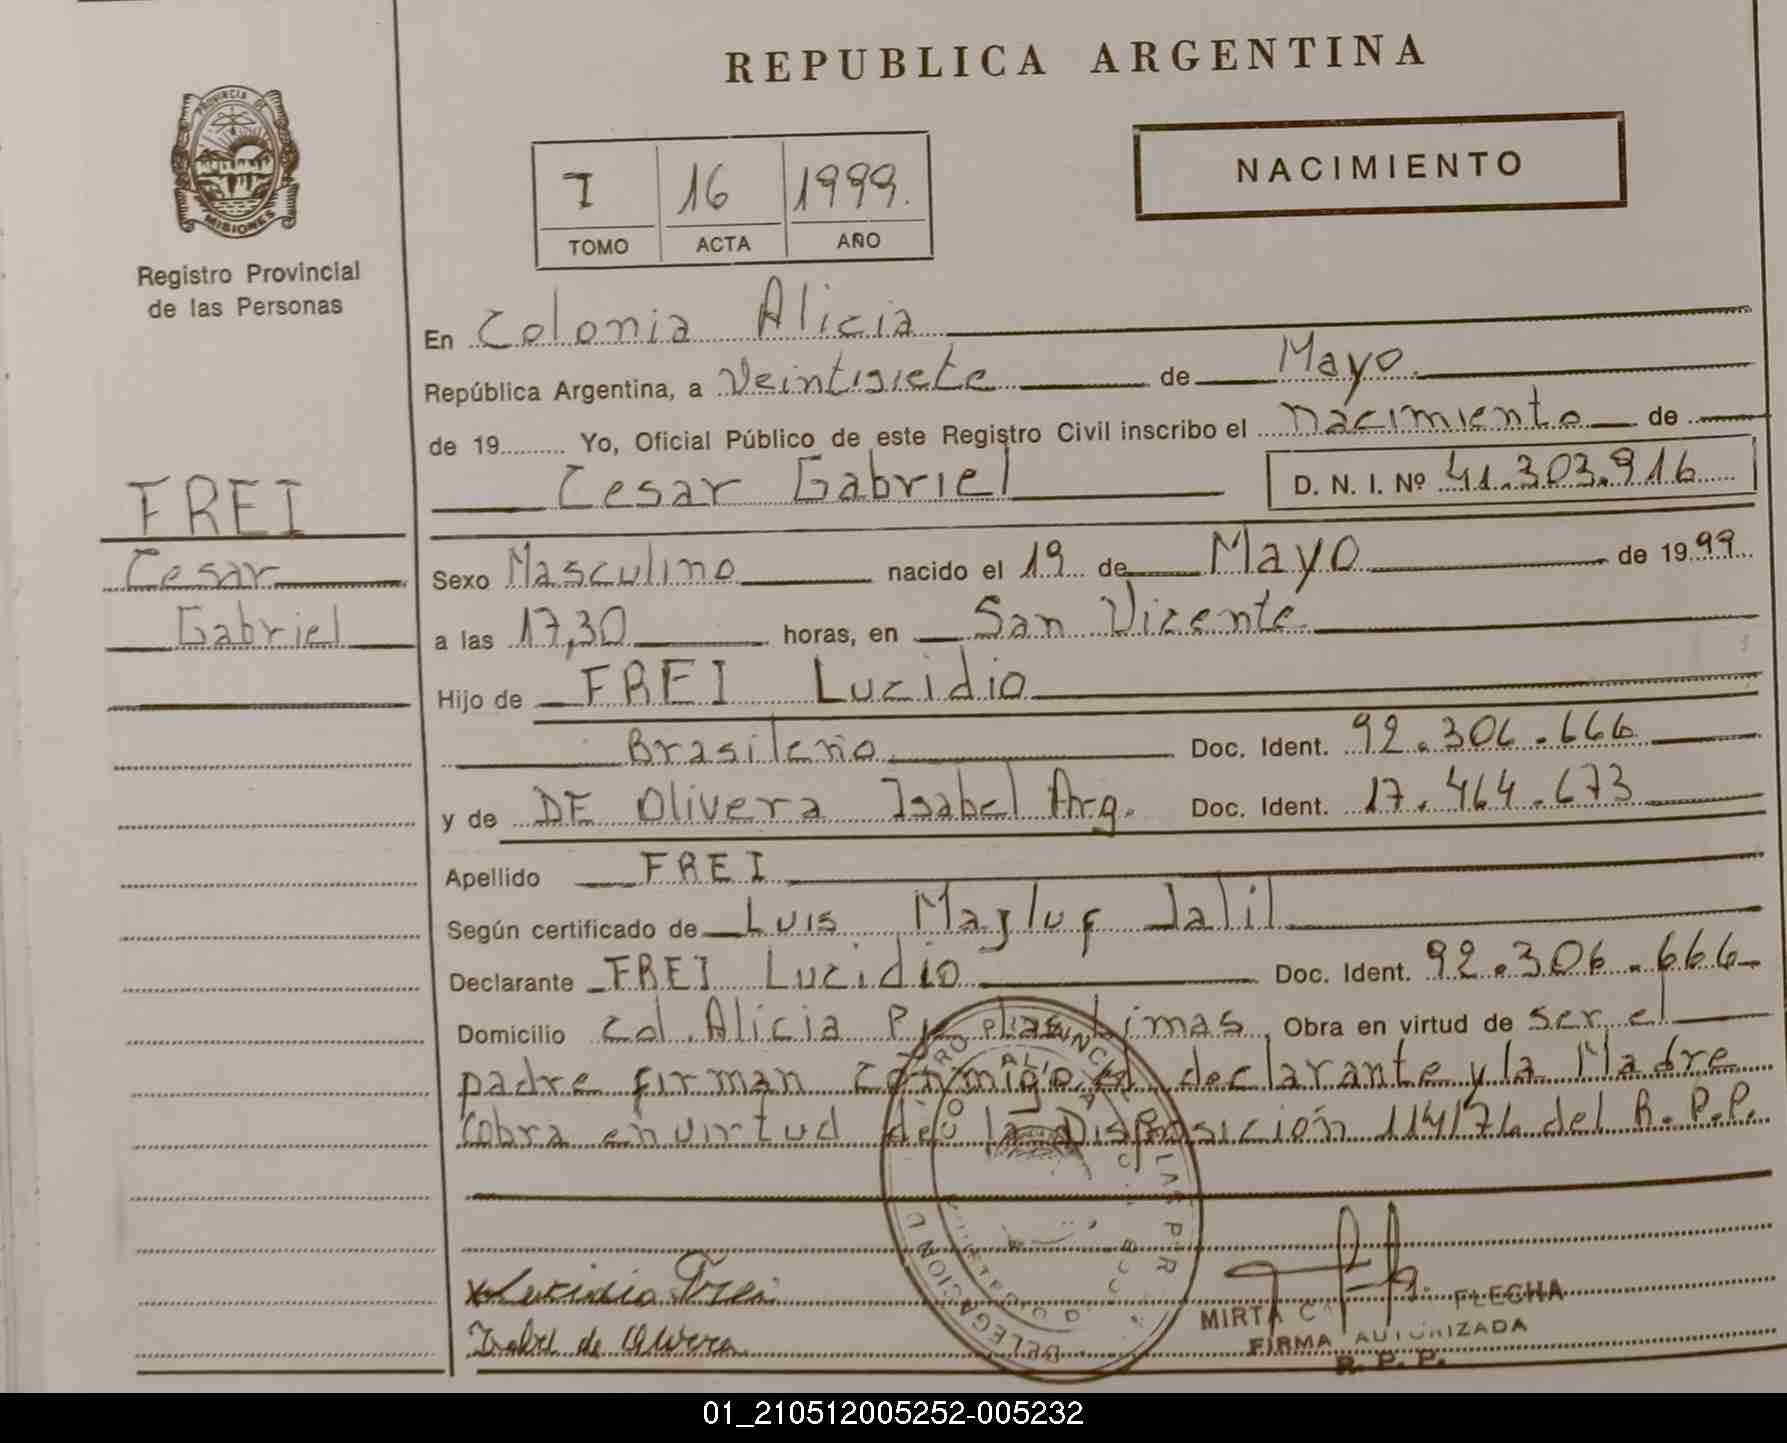 REPUBLICA ARGENTINA
PROVINCIA DE
MISIONES
Registro Provincial
de las Personas
NACIMIENTO
I 16 1999.
TOMO ACTA AÑO
En Colonia Alicia
República Argentina, a Veintisiete de Mayo.
de 19.......... Yo, Oficial Público de este Registro Civil inscribo el nacimiento de
Cesar Gabriel D. N. I. Nº 41.303.916
FREI
Cesar
Gabriel
Sexo Masculino nacido el 19 de Mayo de 1999
a las 17,30 horas, en San Vicente.
Hijo de FREI Lucidio
Brasileño Doc. Ident. 92.306.666
y de DE Olivera Isabel Arg. Doc. Ident. 17.464.673
Apellido FREI
Según certificado de Luis Jalil
Declarante FREI Lucidio Doc. Ident. 92.306.666
Domicilio Col. Alicia Limas, Obra en virtud de ser el
padre firman conmigo el declarante y la Madre
Cobra en virtud de la Disposición del R.P.P.
x Lucidio Frei
Isabel de Olivera
MIRTA C. FLECHA
FIRMA AUTORIZADA
R. P. P.
01_210512005252-005232